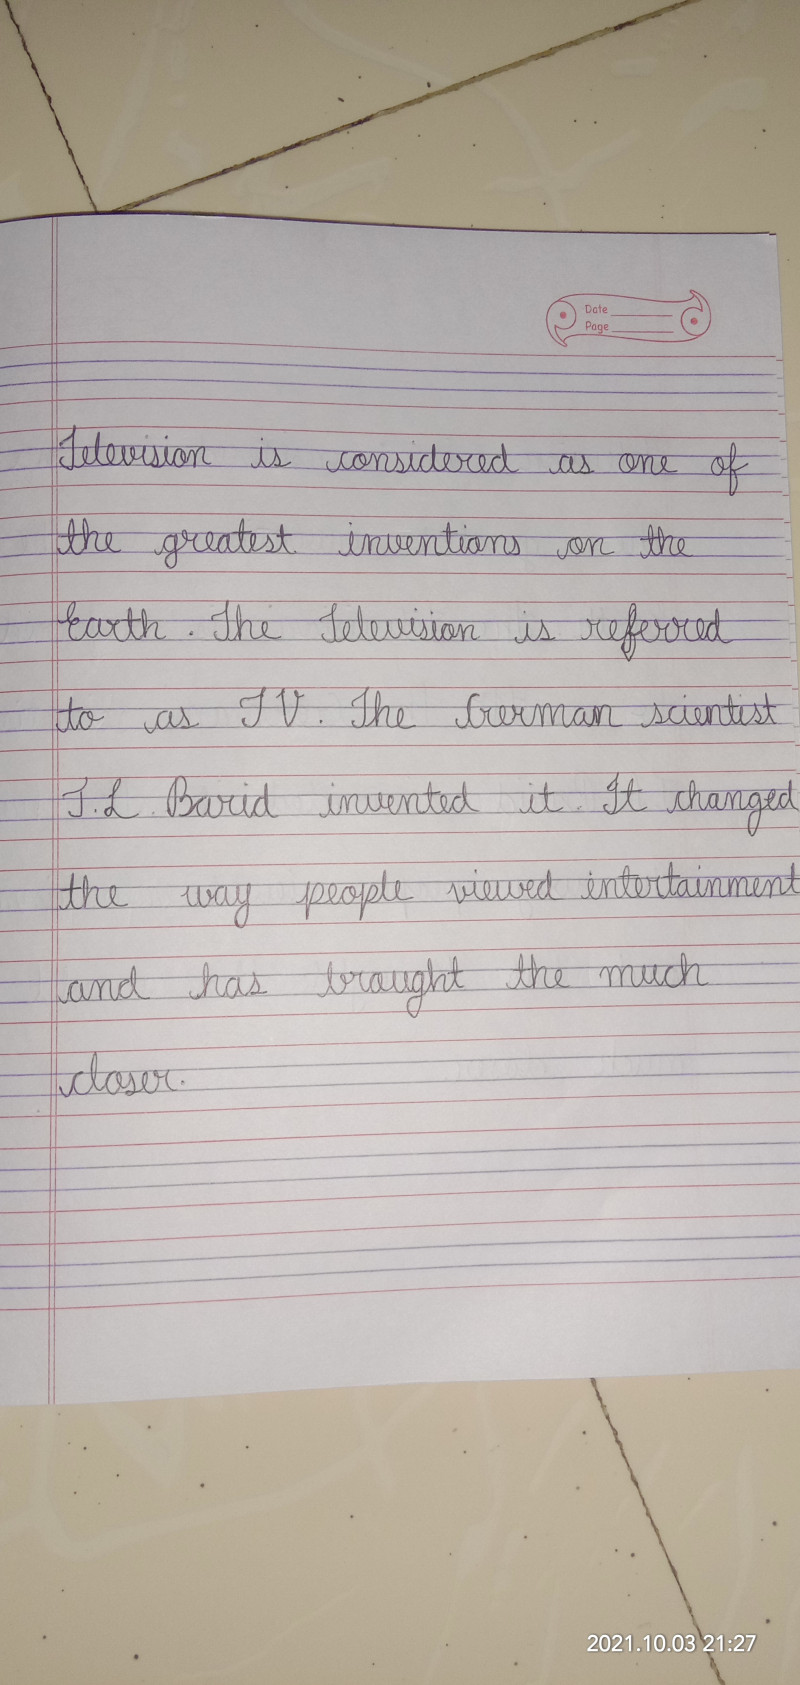 Date
Page
Television is considered as one of
the greatest inventions on the
Earth. The Television is referred
to as TV. The German scientist
J.L. Barid invented it. It changed
the way people viewed entertainment
and has brought the much
closer.
2021.10.03 21:27